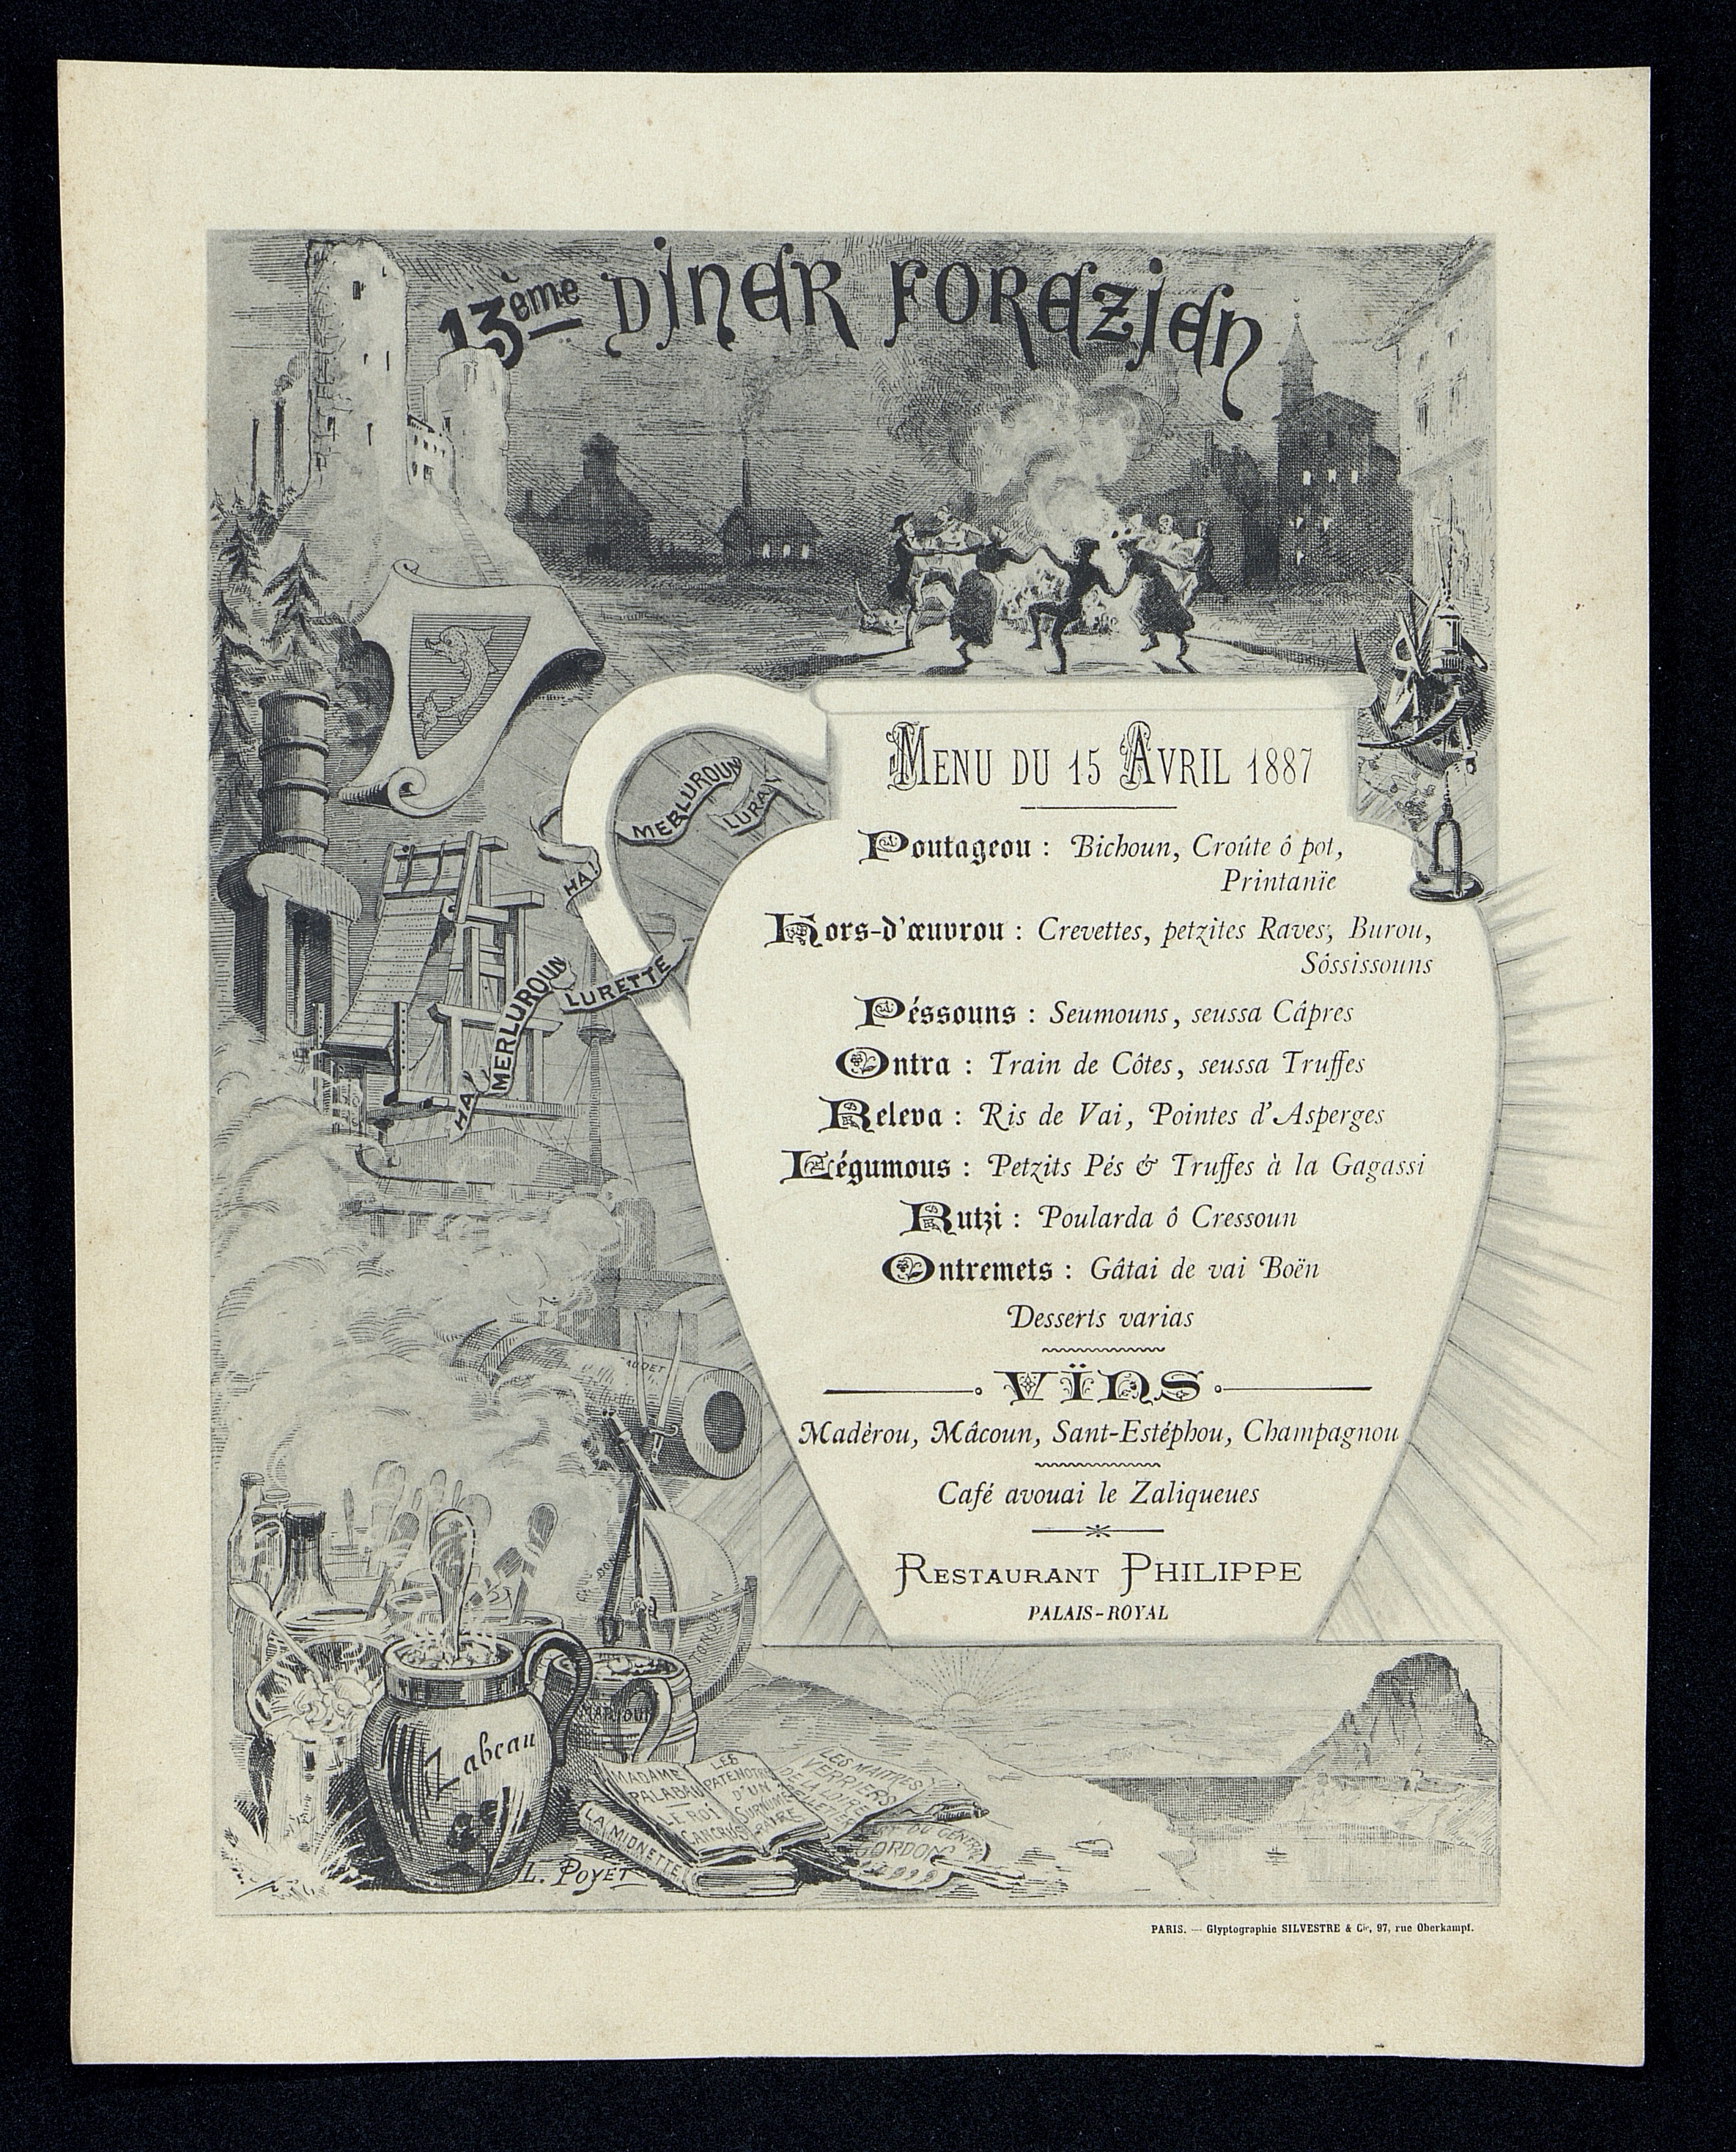 13ème DINER FOREZIEN
MENU DU 15 AVRIL 1887
Poutageou : Bichoun, Croûte ô pot,
Printanïe
Hors-d'œuvrou : Crevettes, petzites Raves, Burou,
Sôssissouns
Péssouns : Seumouns, seussa Câpres
Ontra : Train de Côtes, seussa Truffes
Releva : Ris de Vai, Pointes d'Asperges
Légumous : Petzits Pés & Truffes à la Gagassi
Rutzi : Poularda ô Cressoun
Ontremets : Gâtai de vai Boën
Desserts varias
VÏNS
Madèrou, Mâcoun, Sant-Estéphou, Champagnou
Café avouai le Zaliqueues
RESTAURANT PHILIPPE
PALAIS-ROYAL
MERLUROUN
LURA
HA!
LURETTE
MERLUROUN
HA!
Zabeau
MADAME
PALABAU
LE ROI
LES
PATENOTRES
D'UN
SURNUMÉ
RAIRE
LES MAITRES
VERRIERS
DE LA LOIRE
LA MIONETTE
GORDON
L. POYET
PARIS. — Glyptographie SILVESTRE & Cie, 97, rue Oberkampf.